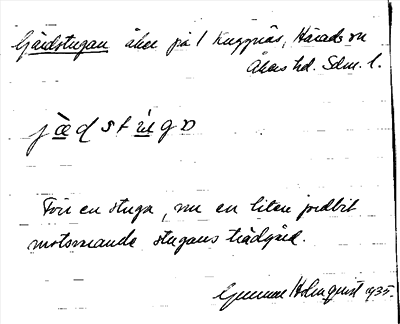 Gärdstugan åker på 1 Kuggnäs, Härads sn
Åkers hd. Sdm. l.
jädstugo
Förr en stuga, nu en liten jordbit
motsvarande stugans trädgård.
Gunnar Holmquist 1935.